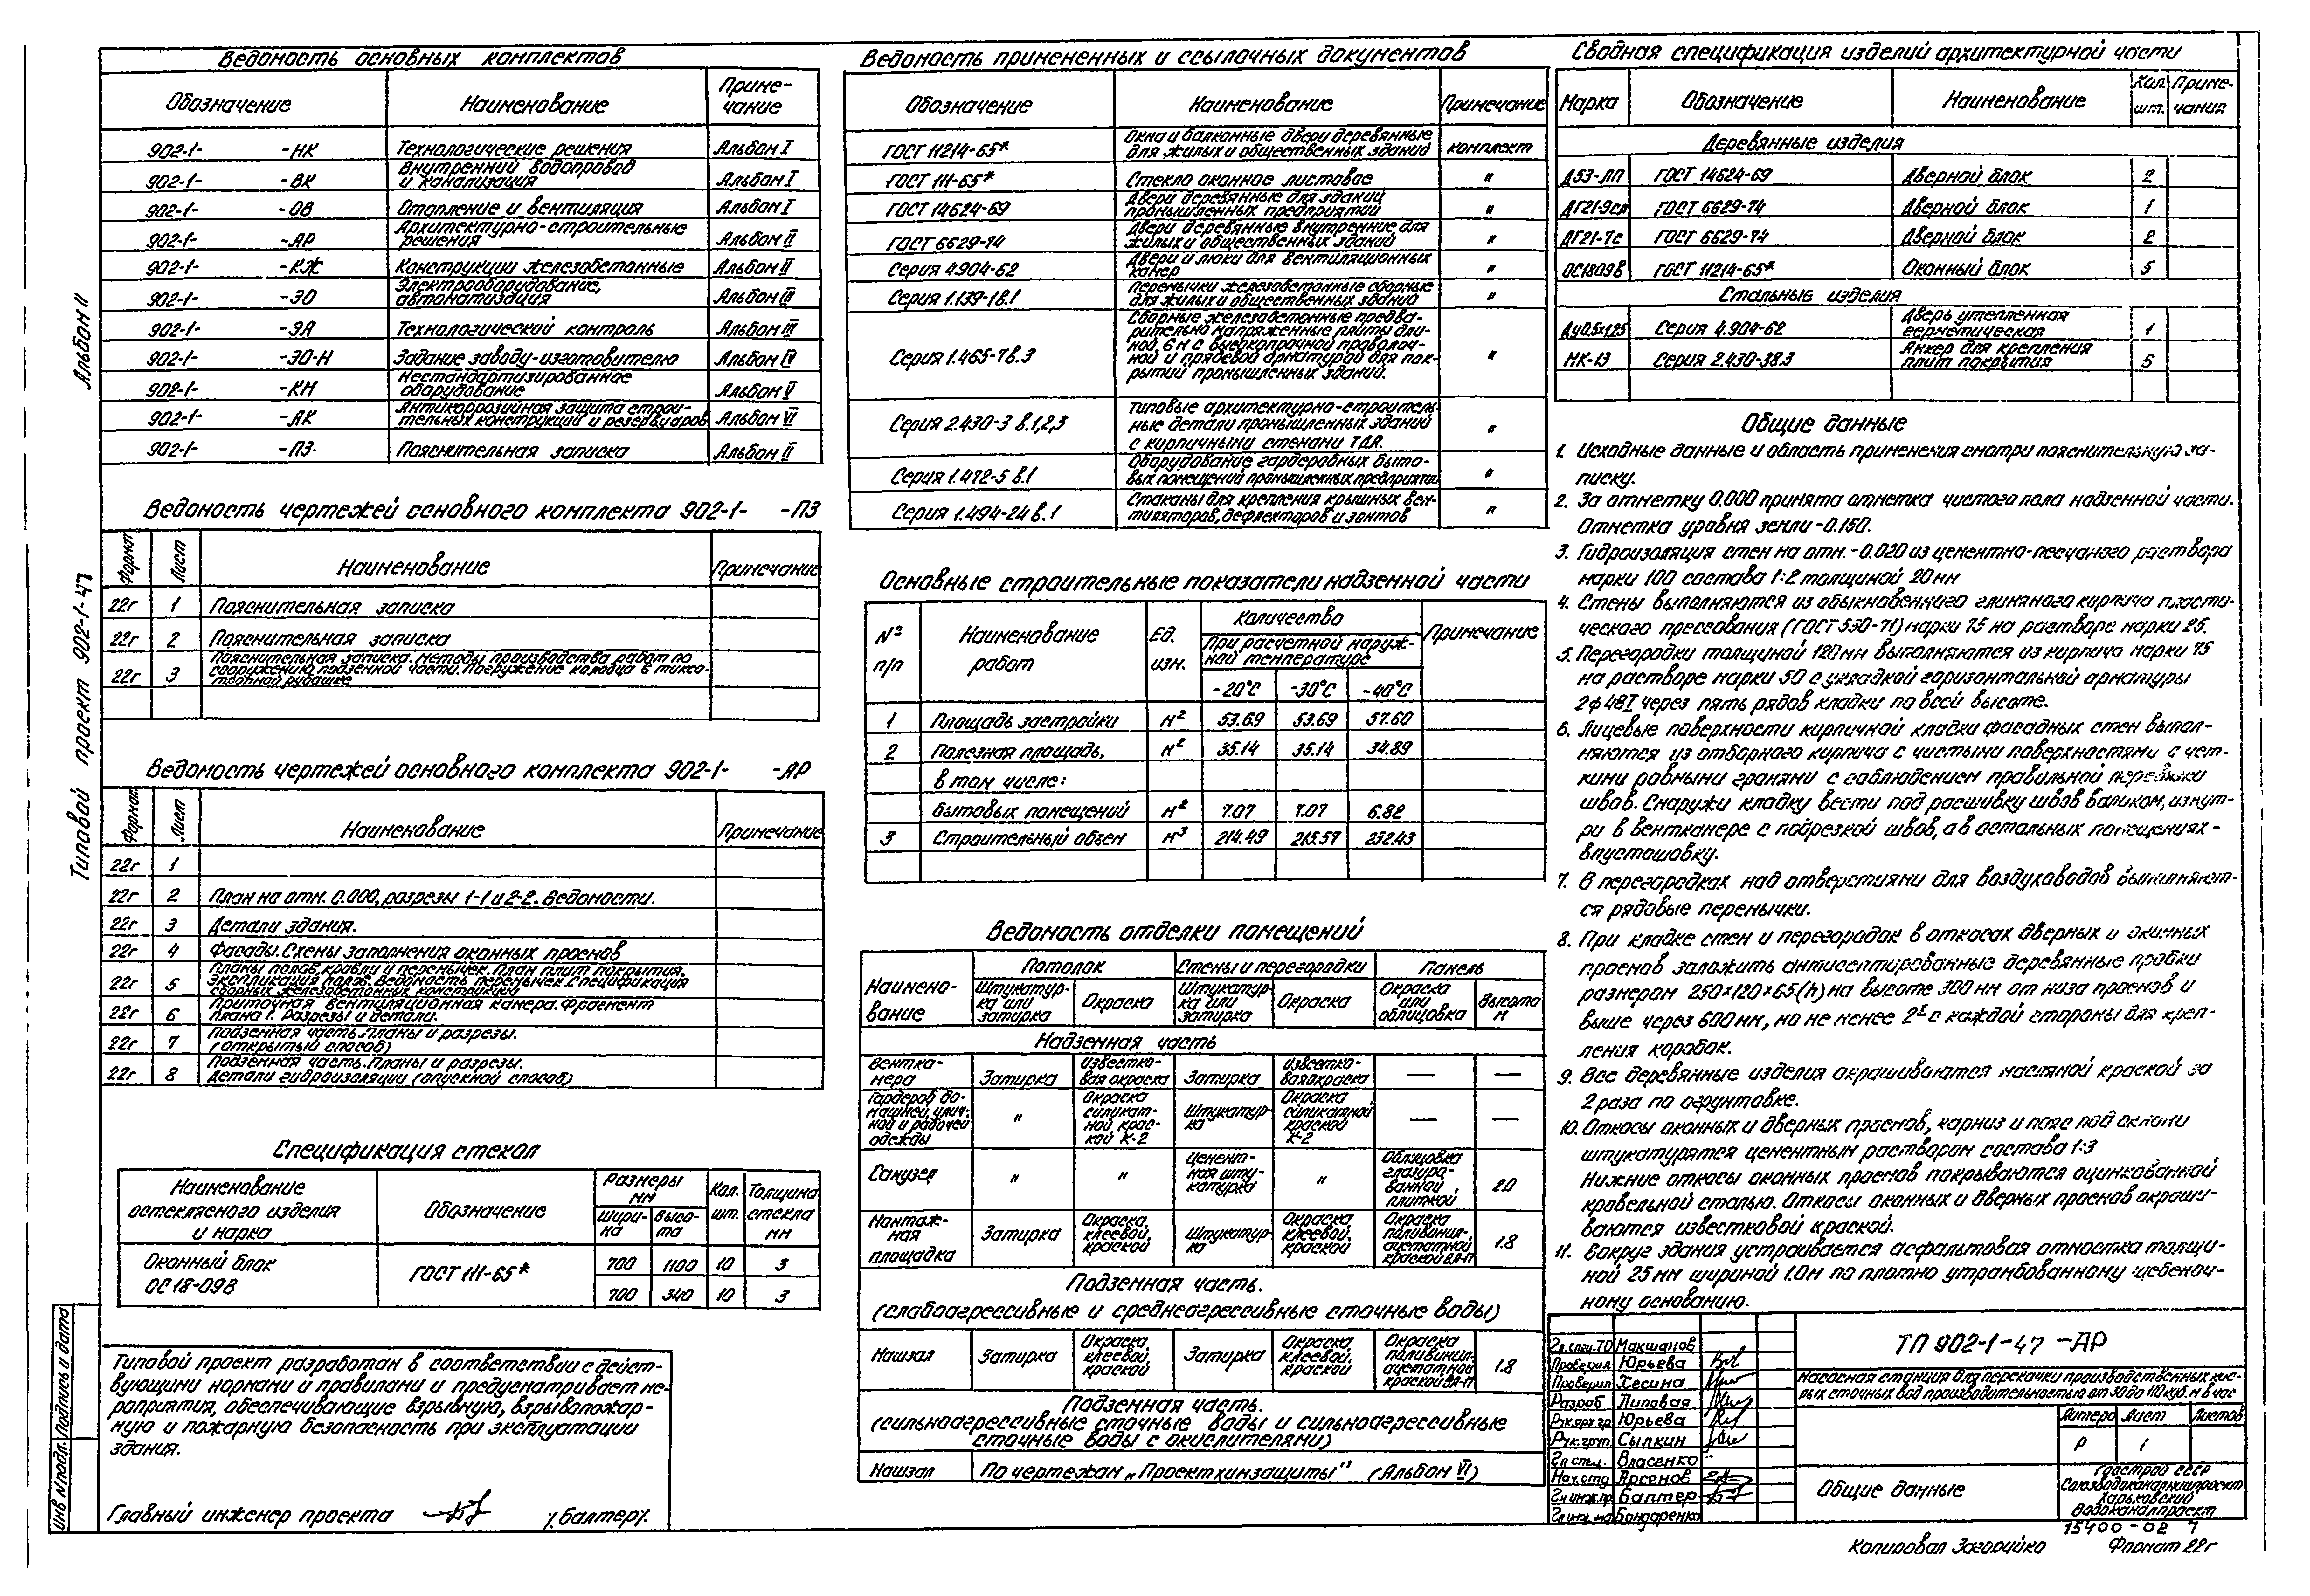 Альбом II
Типовой проект 902-1-47
Инв № подл. Подпись и дата
Ведомость основных комплектов
Обозначение Наименование Приме-
чание
902-1- -НК Технологические решения Альбом I
902-1- -ВК Внутренний водопровод
и канализация Альбом I
902-1- -ОВ Отопление и вентиляция Альбом I
902-1- -АР Архитектурно-строительные
решения Альбом II
902-1- -КЖ Конструкции железобетонные Альбом II
902-1- -ЭО Электрооборудование,
автоматизация Альбом III
902-1- -ЭА Технологический контроль Альбом III
902-1- -ЭО-Н Задание заводу-изготовителю Альбом IV
902-1- -КМ Нестандартизированное
оборудование Альбом V
902-1- -АК Антикоррозийная защита строи-
тельных конструкций и резервуаров Альбом VI
902-1- -ПЗ Пояснительная записка Альбом II
Ведомость чертежей основного комплекта 902-1- -ПЗ
Формат Лист Наименование Примечание
22г 1 Пояснительная записка
22г 2 Пояснительная записка
22г 3 Пояснительная записка. Методы производства работ по
сооружению подземной части. Погружение колодца в тиксо-
тропной рубашке
Ведомость чертежей основного комплекта 902-1- -АР
Формат Лист Наименование Примечание
22г 1
22г 2 План на отм. 0.000, разрезы 1-1 и 2-2. Ведомости.
22г 3 Детали здания.
22г 4 Фасады. Схемы заполнения оконных проемов
22г 5 Планы полов, кровли и перемычек. План плит покрытия.
Экспликация полов. Ведомость перемычек. Спецификация
сборных железобетонных конструкций
22г 6 Приточная вентиляционная камера. Фрагмент
плана 1. Разрезы и детали.
22г 7 Подземная часть. Планы и разрезы.
(открытый способ)
22г 8 Подземная часть. Планы и разрезы.
Детали гидроизоляции (опускной способ)
Спецификация стекол
Наименование
остекляемого изделия
и марка Обозначение Размеры
мм Кол.
шт. Толщина
стекла
мм
Шири-
на Высо-
та
Оконный блок
ОС 18-09В ГОСТ 111-65* 700 1100 10 3
700 340 10 3
Типовой проект разработан в соответствии с дейст-
вующими нормами и правилами и предусматривает ме-
роприятия, обеспечивающие взрывную, взрывопожар-
ную и пожарную безопасность при эксплуатации
здания.
Главный инженер проекта /Балтер/.
Ведомость примененных и ссылочных документов
Обозначение Наименование Примечание
ГОСТ 11214-65* Окна и балконные двери деревянные
для жилых и общественных зданий комплект
ГОСТ 111-65* Стекло оконное листовое "
ГОСТ 14624-69 Двери деревянные для зданий
промышленных предприятий "
ГОСТ 6629-74 Двери деревянные внутренние для
жилых и общественных зданий "
Серия 4.904-62 Двери и люки для вентиляционных
камер "
Серия 1.139-1 в.1 Перемычки железобетонные сборные
для жилых и общественных зданий "
Серия 1.465-7 в.3 Сборные железобетонные предва-
рительно напряженные плиты дли-
ной 6м с высокопрочной проволоч-
ной и прядевой арматурой для пок-
рытий промышленных зданий. "
Серия 2.430-3 в.1,2,3 Типовые архитектурно-строитель-
ные детали промышленных зданий
с кирпичными стенами ТДА. "
Серия 1.472-5 в.1 Оборудование гардеробных быто-
вых помещений промышленных предприятий "
Серия 1.494-24 в.1 Стаканы для крепления крышных вен-
тиляторов, дефлекторов и зонтов "
Основные строительные показатели надземной части
№
п/п Наименование
работ Ед.
изм. Количество Примечание
При расчетной наруж-
ной температуре
-20°С -30°С -40°С
1 Площадь застройки м² 53.69 53.69 57.60
2 Полезная площадь, м² 35.14 35.14 34.89
в том числе:
бытовых помещений м² 7.07 7.07 6.82
3 Строительный объем м³ 214.49 215.57 232.43
Ведомость отделки помещений
Наимено-
вание Потолок Стены и перегородки Панель
Штукатур-
ка или
затирка Окраска Штукатур-
ка или
затирка Окраска Окраска
или
облицовка Высота
м
Надземная часть
Вентка-
мера Затирка Известко-
вая окраска Затирка Известко-
вая окраска — —
Гардероб до-
машней, улич-
ной и рабочей
одежды " Окраска
силикат-
ной крас-
кой К-2 Штукатур-
ка Окраска
силикатной
краской
К-2 — —
Санузел " " Цемент-
ная шту-
катурка " Облицовка
глазуро-
ванной
плиткой 2.0
Монтаж-
ная
площадка Затирка Окраска
клеевой
краской Штукатур-
ка Окраска
клеевой
краской Окраска
поливинил-
ацетатной
краской ВА-П 1.8
Подземная часть.
(слабоагрессивные и среднеагрессивные сточные воды)
Машзал Затирка Окраска
клеевой
краской Затирка Окраска
клеевой
краской Окраска
поливинил-
ацетатной
краской ВА-П 1.8
Подземная часть.
(сильноагрессивные сточные воды и сильноагрессивные
сточные воды с окислителями)
Машзал По чертежам „Проектхимзащиты" (Альбом VI)
Сводная спецификация изделий архитектурной части
Марка Обозначение Наименование Кол.
шт. Приме-
чания
Деревянные изделия
Д53-ЛП ГОСТ 14624-69 Дверной блок 2
ДГ21-9сл ГОСТ 6629-74 Дверной блок 1
ДГ21-7с ГОСТ 6629-74 Дверной блок 2
ОС1809В ГОСТ 11214-65* Оконный блок 5
Стальные изделия
Ду0.5х1.25 Серия 4.904-62 Дверь утепленная
герметическая 1
МК-13 Серия 2.430-3в.3 Анкер для крепления
плит покрытия 5
Общие данные
1. Исходные данные и область применения смотри пояснительную за-
писку.
2. За отметку 0.000 принята отметка чистого пола надземной части.
Отметка уровня земли -0.150.
3. Гидроизоляция стен на отм. -0.020 из цементно-песчаного раствора
марки 100 состава 1:2 толщиной 20мм
4. Стены выполняются из обыкновенного глиняного кирпича пласти-
ческого прессования (ГОСТ 530-71) марки 75 на растворе марки 25.
5. Перегородки толщиной 120мм выполняются из кирпича марки 75
на растворе марки 50 с укладкой горизонтальной арматуры
2ф4ВI через пять рядов кладки по всей высоте.
6. Лицевые поверхности кирпичной кладки фасадных стен выпол-
няются из отборного кирпича с чистыми поверхностями с чет-
кими ровными гранями с соблюдением правильной перевязки
швов. Снаружи кладку вести под расшивку швов валиком, изнут-
ри в венткамере с подрезкой швов, а в остальных помещениях -
впустошовку.
7. В перегородках над отверстиями для воздуховодов выполняют-
ся рядовые перемычки.
8. При кладке стен и перегородок в откосах дверных и оконных
проемов заложить антисептированные деревянные пробки
размером 250×120×65(h) на высоте 300 мм от низа проемов и
выше через 600мм, но не менее 2х с каждой стороны для креп-
ления коробок.
9. Все деревянные изделия окрашиваются масляной краской за
2 раза по огрунтовке.
10. Откосы оконных и дверных проемов, карниз и пояс под окнами
штукатурятся цементным раствором состава 1:3
Нижние откосы оконных проемов покрываются оцинкованной
кровельной сталью. Откосы оконных и дверных проемов окраши-
ваются известковой краской.
11. Вокруг здания устраивается асфальтовая отмостка толщи-
ной 25 мм шириной 1.0м по плотно утрамбованному щебеноч-
ному основанию.
Гл.спец.ТО Макшанов
Проверил Юрьева
Проверил Хесина
Разраб Липовая
Рук.арх.гр Юрьева
Рук.груп. Сылкин
Гл спец. Власенко
Нач.отд Арсенов
Гл инж.пр Балтер
Гл инж. Бондаренко
ТП 902-1-47 -АР
Насосная станция для перекачки производственных кис-
лых сточных вод производительностью от 30 до 110 куб. м в час
Литера Лист Листов
Р 1
Общие данные
Госстрой СССР
Союзводоканалниипроект
Харьковский
Водоканалпроект
15400-02 7
Копировал Загоруйко Формат 22г